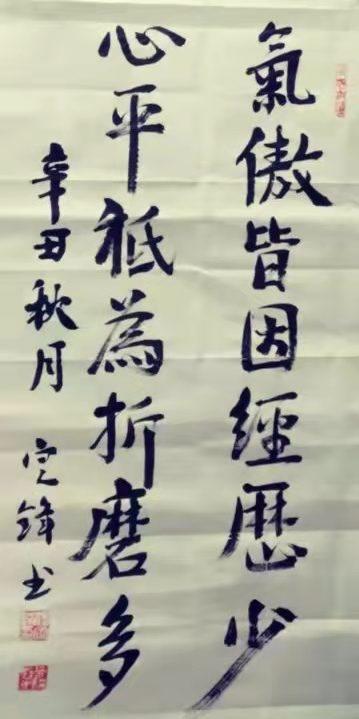 氣傲皆因經歷少
心平祗為折磨多
辛丑秋月
定鋒书